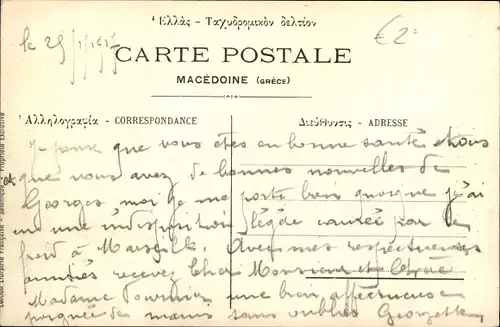 Ἑλλὰς - Ταχυδρομικὸν δελτίον
le 25/1/1917
€2-
CARTE POSTALE
MACÉDOINE (GRÈCE)
Ἀλληλογραφία - CORRESPONDANCE
Διεύθυνσις - ADRESSE
J pense que vous êtes en bonne santé tous
et que vous avez de bonnes nouvelles de
Georges moi je me porte bien quoique j'ai
eu une indisposition légère causée par le
froid à Marseille. Avec mes respectueuses
amitiés recevez Cher Monsieur et Chère
Madame Fournier une bien affectueuse
poignée de mains sans oublier Georgette